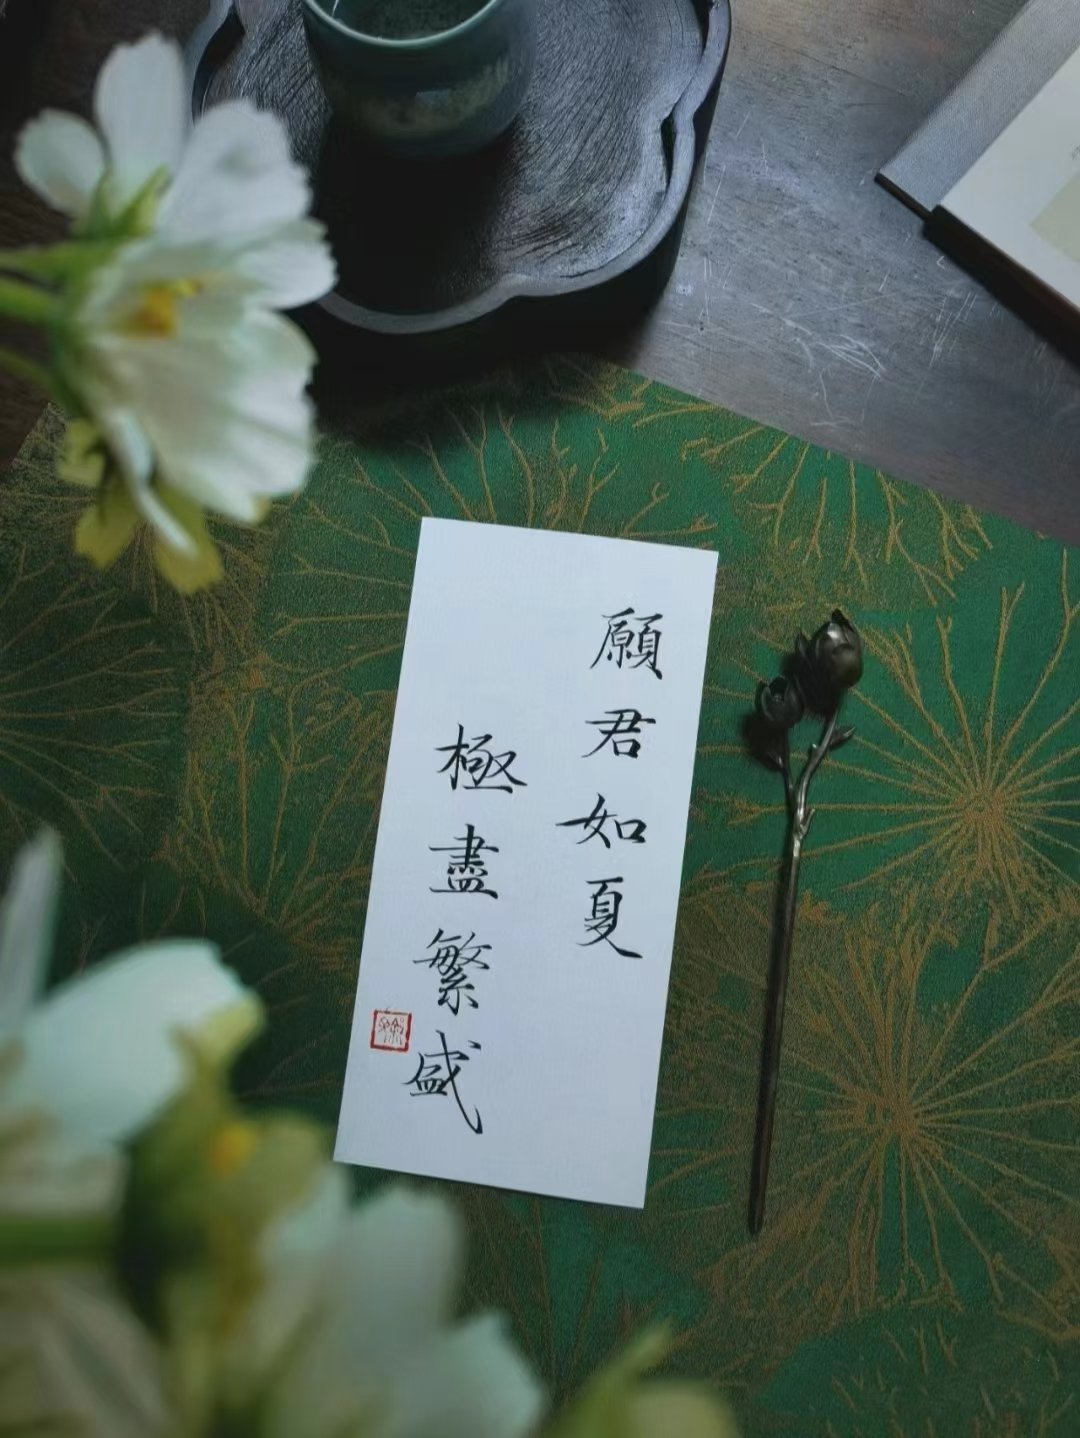 願君如夏
極盡繁盛